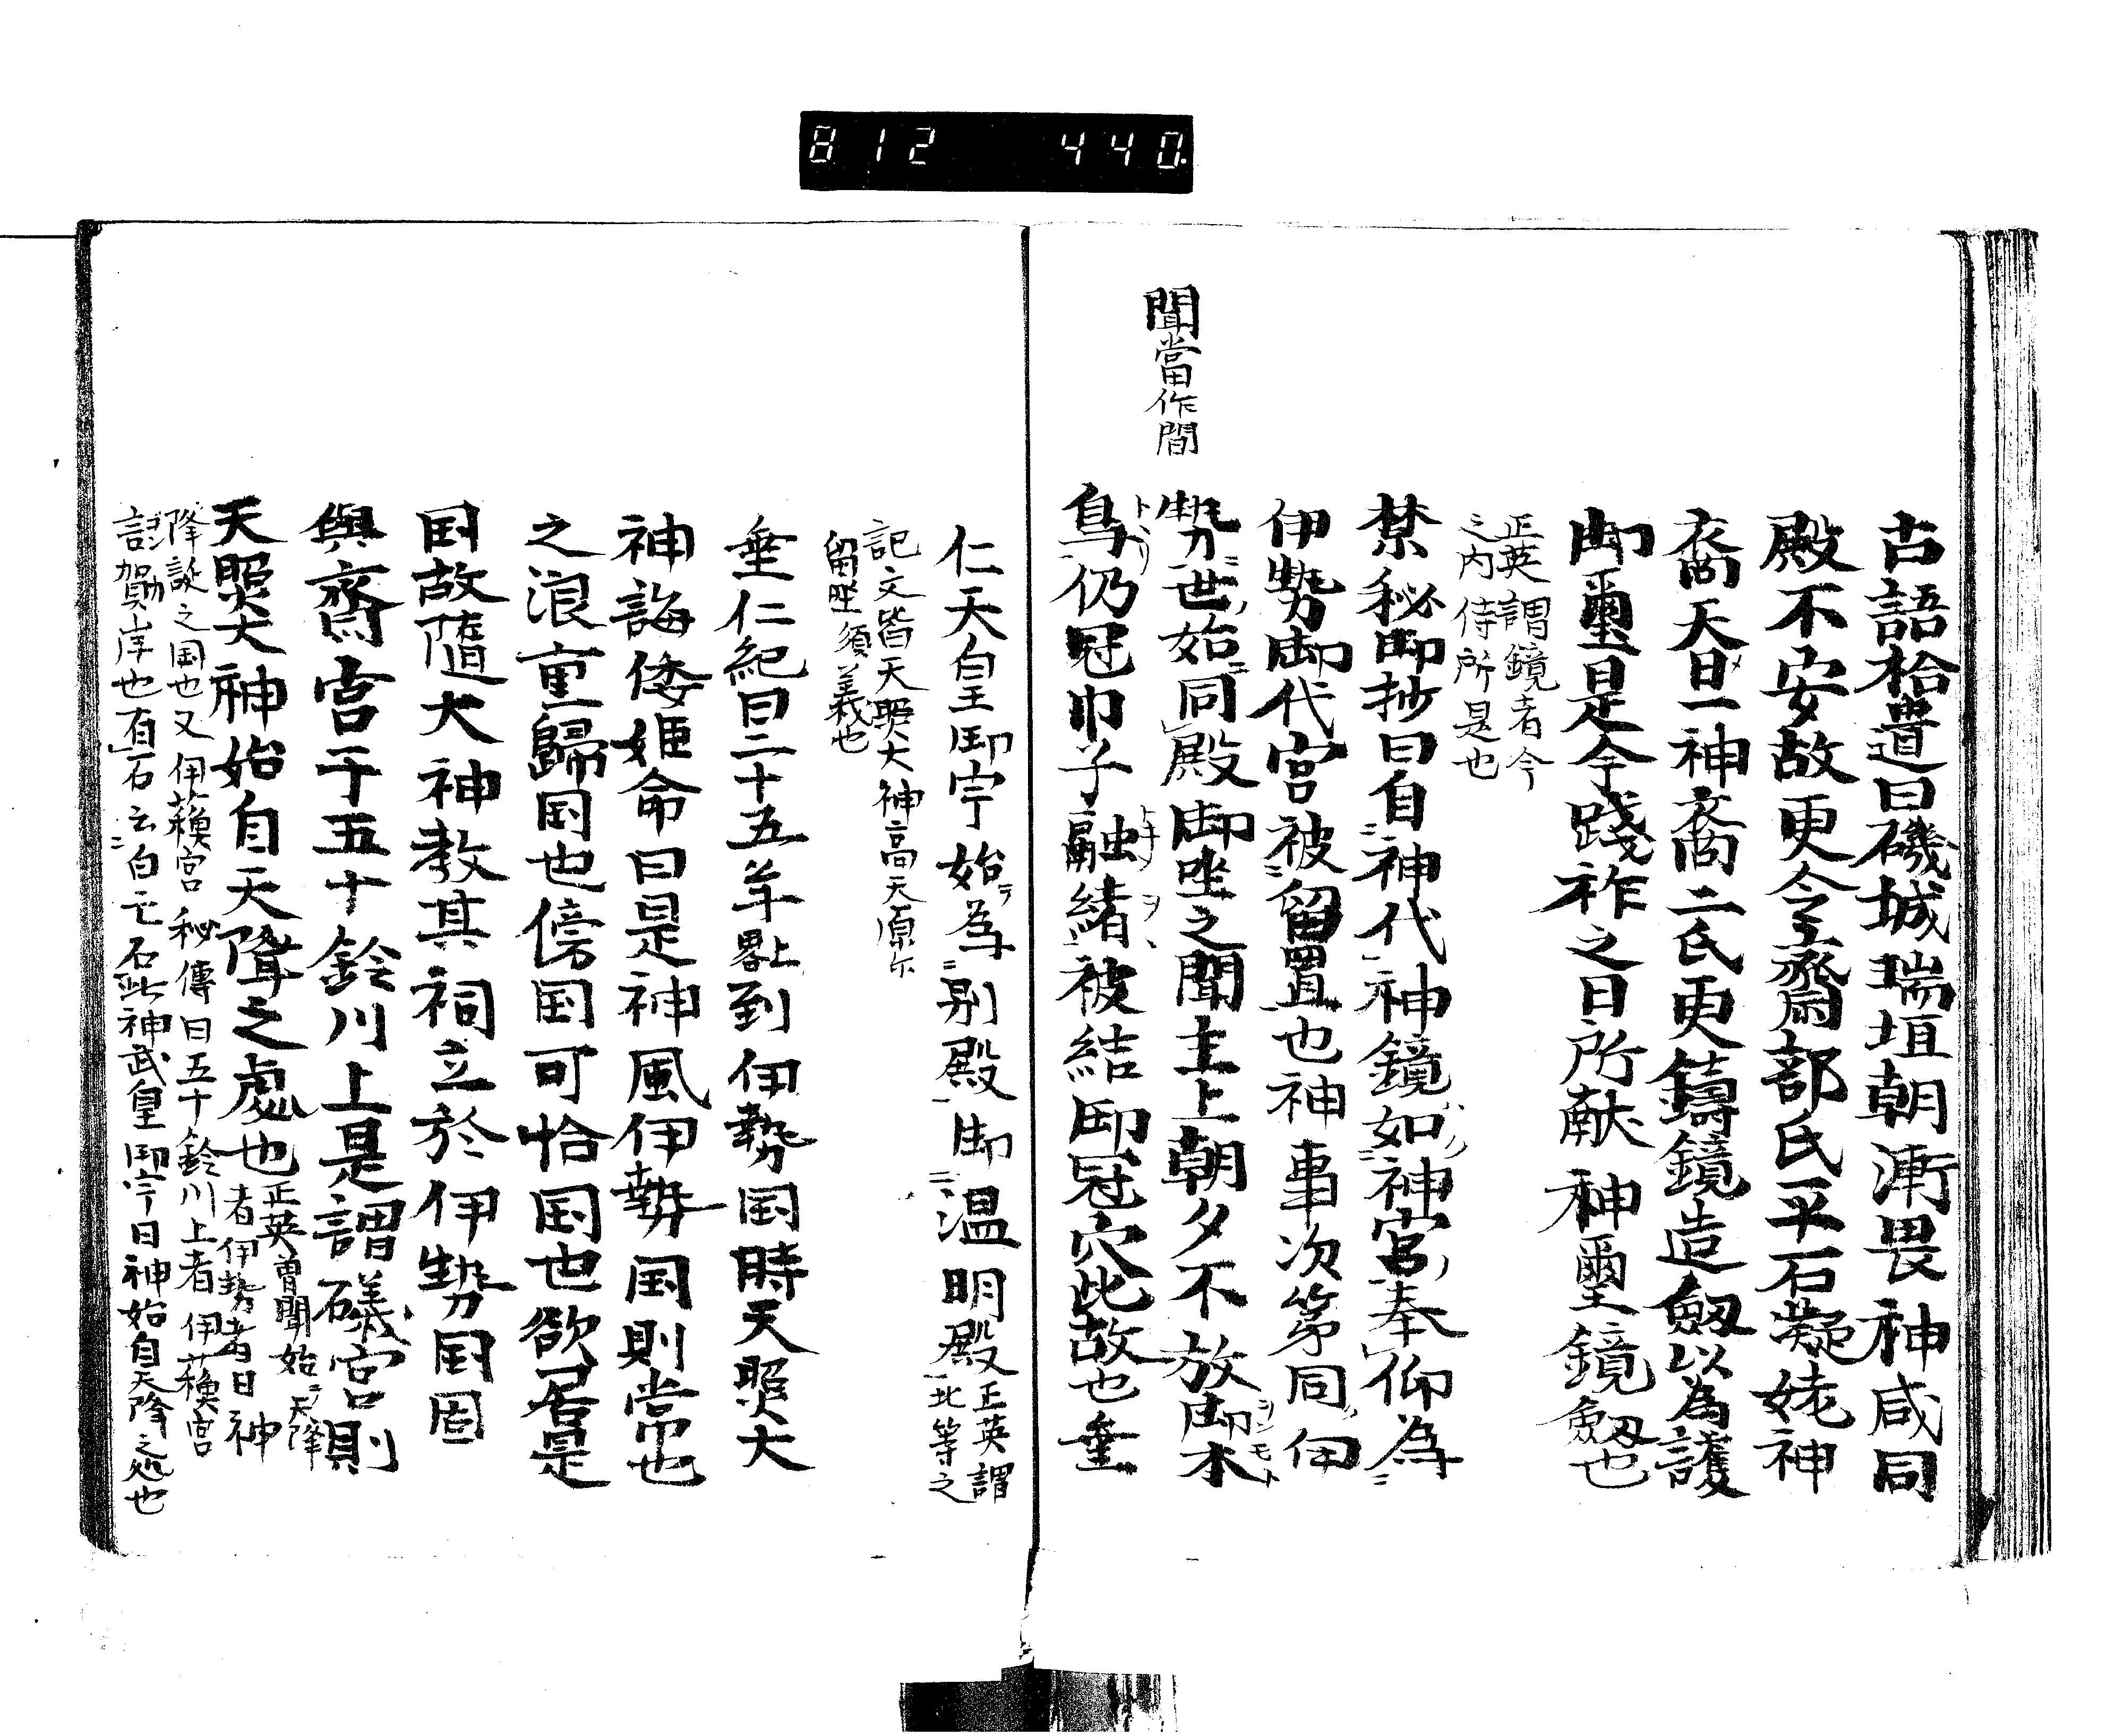 812 440
古語拾遺曰磯城瑞垣朝漸畏神威同
殿不安故更令齋部氏平石凝姥神
裔天目一神裔二氏更鑄鏡造劔以為護
御璽是今踐祚之日所献神璽鏡劔也
正英謂鏡者今
之内侍所是也
禁秘御抄曰自神代神鏡如神宮奉仰為
伊勢御代宮被留置也神事次第同伊
聞當作間
勢世始同殿御坐之聞主上朝夕不放御本
鳥仍冠巾子融緒被結御冠穴此故也垂
仁天皇御宇始為別殿御温明殿
正英謂
北等之
記文皆天照大神高天原尓
留坐須義也
垂仁紀曰二十五年畧上到伊勢国時天照大
神誨倭姫命曰是神風伊勢国則常也
之浪重歸国也傍国可怡国也欲居是
国故隨大神教其祠立於伊勢国因
與齋宮于五十鈴川上是謂礒宮則
天照大神始自天降之處也
正英曽聞始天降
者伊勢者日神
降誕之国也又伊蘓宮秘傳曰五十鈴川上者伊蘓宮
言賀岸也有石云白亡石此神武皇御宇日神始自天降之処也